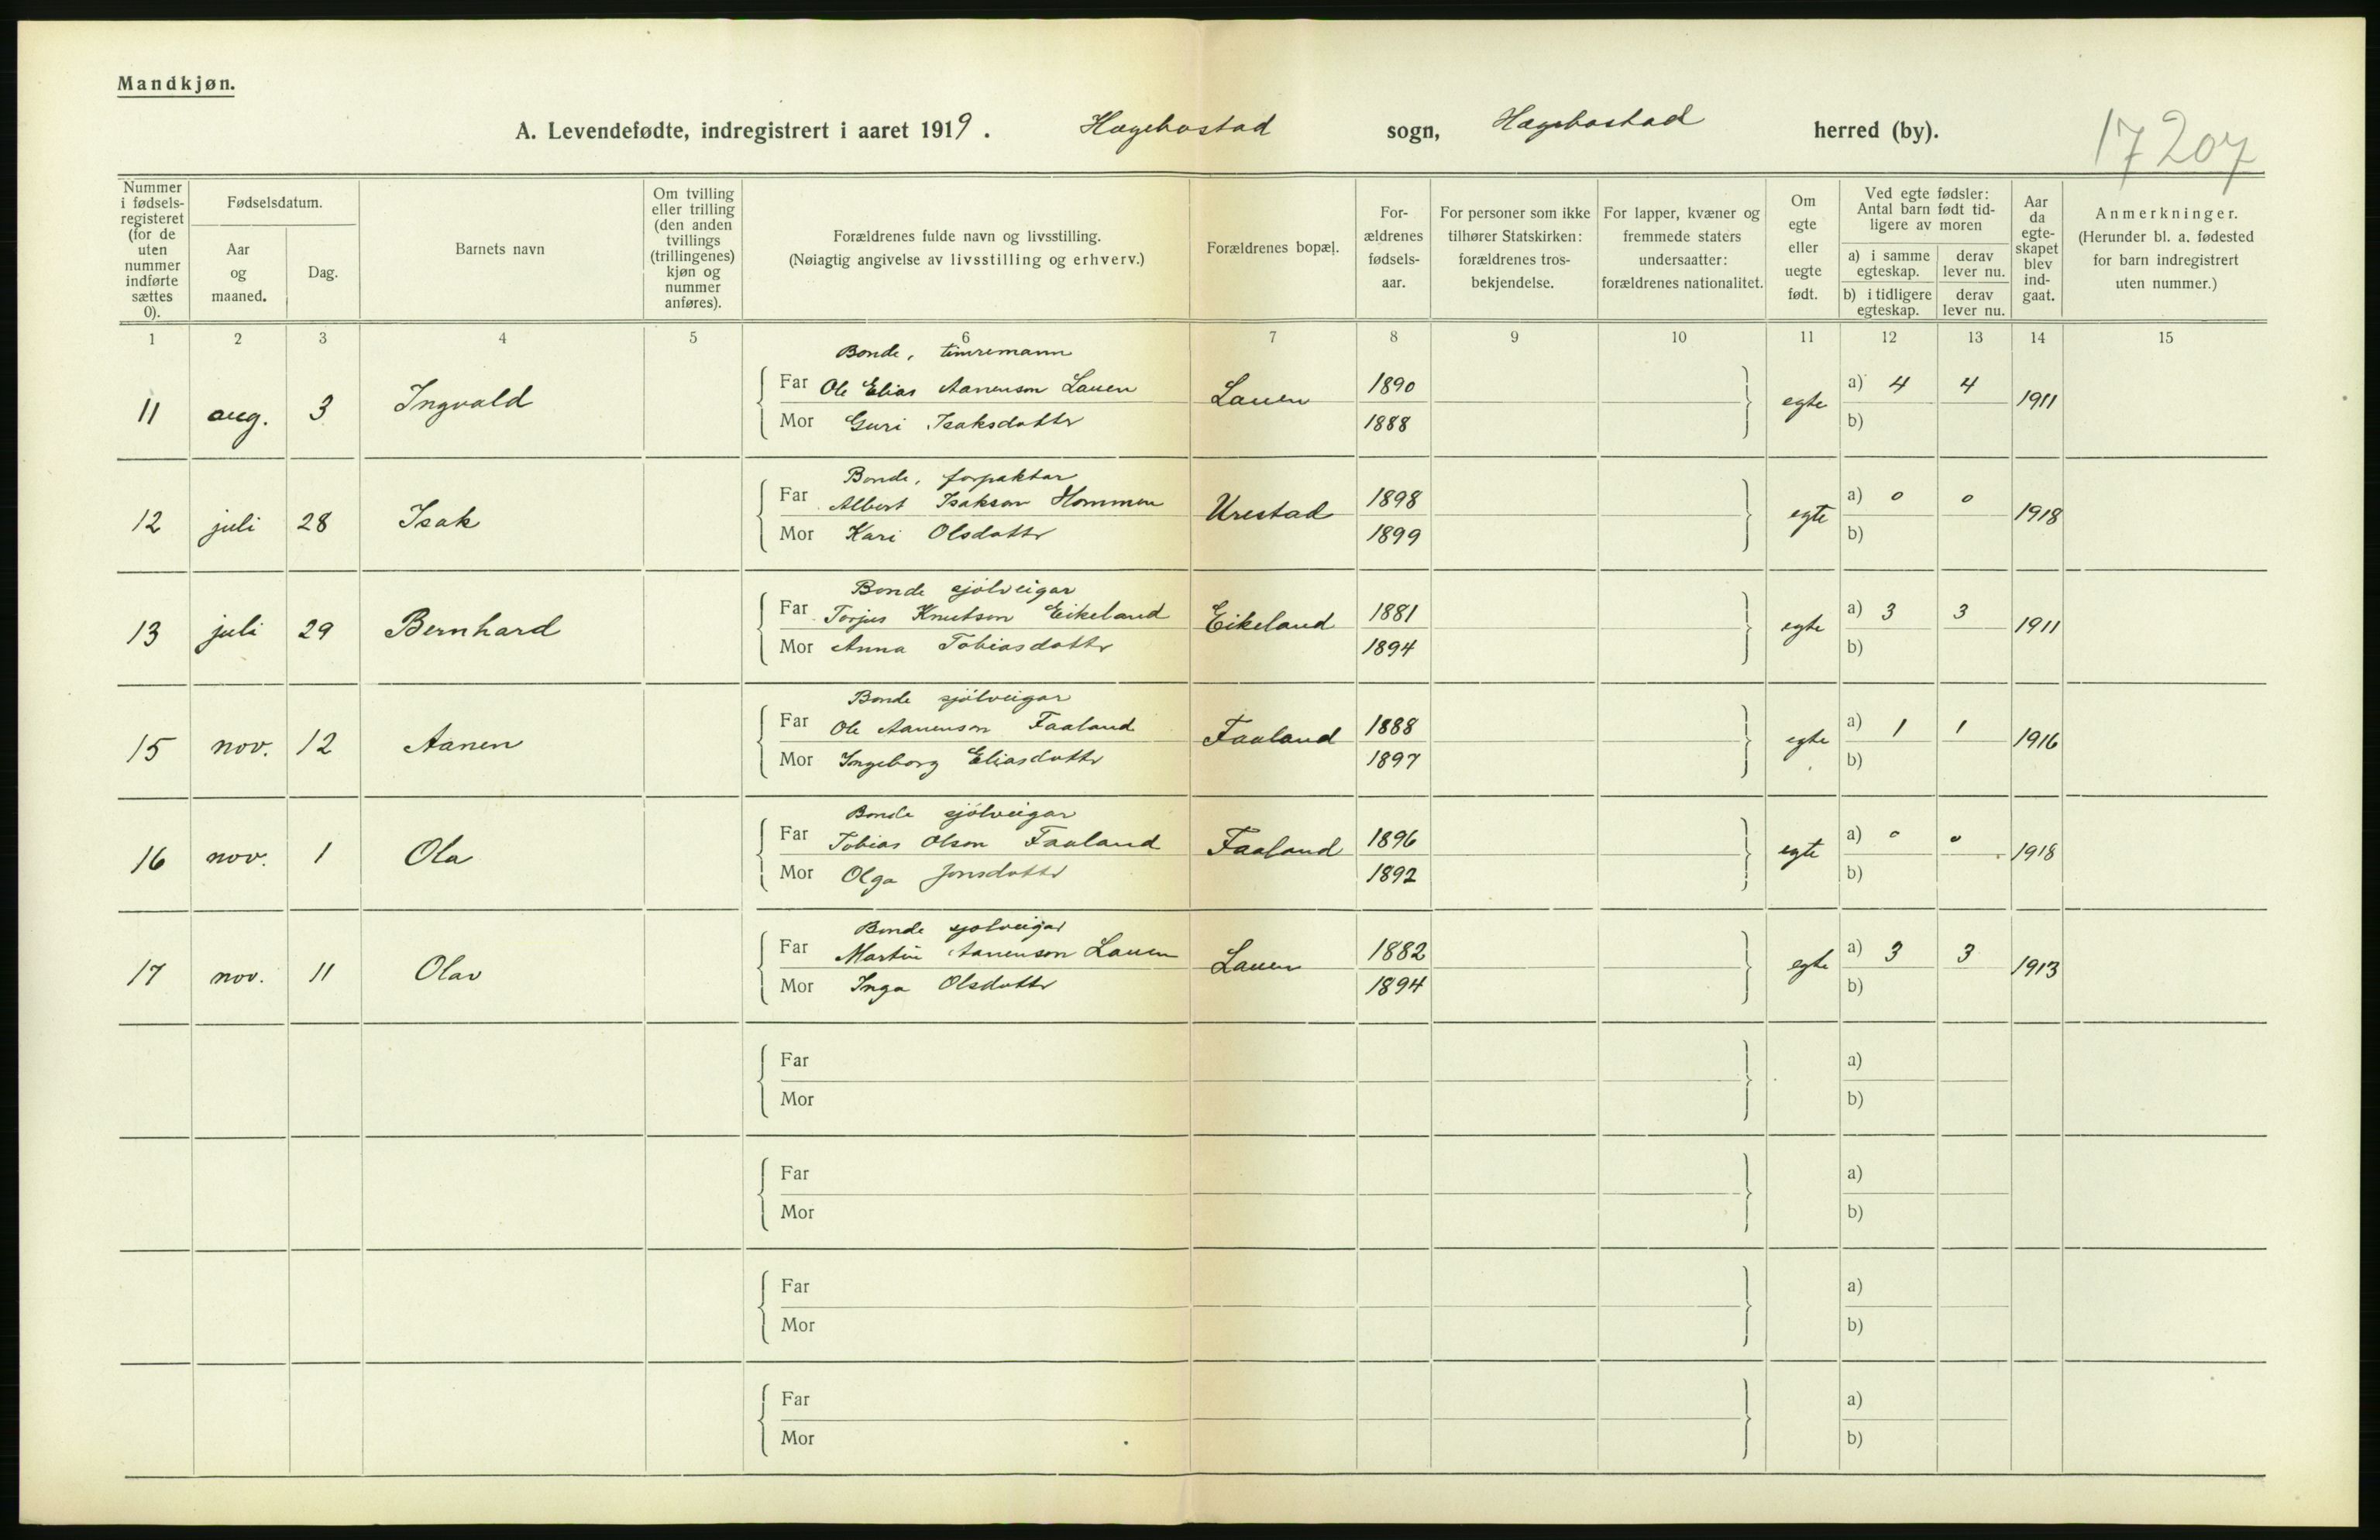 Mandkjøn.
A. Levendefødte, indregistrert i aaret 1919. Hægebostad sogn, Hægebostad herred (by).
17 207
Nummer i fødselsregisteret (for de uten nummer indførte sættes 0).
Fødselsdatum.
Aar og maaned.
Dag.
Barnets navn
Om tvilling eller trilling (den anden tvillings (trillingenes) kjøn og nummer anføres).
Forældrenes fulde navn og livsstilling.
(Nøiagtig angivelse av livsstilling og erhverv.)
Forældrenes bopæl.
Forældrenes fødselsaar.
For personer som ikke tilhører Statskirken: forældrenes trosbekjendelse.
For lapper, kvæner og fremmede staters undersaatter: forældrenes nationalitet.
Om egte eller uegte født.
Ved egte fødsler: Antal barn født tidligere av moren
a) i samme egteskap. derav lever nu.
b) i tidligere egteskap. derav lever nu.
Aar da egteskapet blev indgaat.
Anmerkninger.
(Herunder bl. a. fødested for barn indregistrert uten nummer.)
1 2 3 4 5 6 7 8 9 10 11 12 13 14 15
Bonde, timremann
11 aug. 3 Ingvald Far Ole Elias Aanenson Lauen Lauen 1890 egte a) 4 4 1911
Mor Guri Isaksdottr 1888 b)
Bonde, forpaktar
12 juli 28 Isak Far Albert Isakson Hommen Urestad 1898 egte a) 0 0 1918
Mor Kari Olsdottr 1899 b)
Bonde sjölveigar
13 juli 29 Bernhard Far Torjus Knutson Eikeland Eikeland 1881 egte a) 3 3 1911
Mor Anna Tobiasdottr 1894 b)
Bonde sjölveigar
15 nov. 12 Aanen Far Ole Aanenson Faaland Faaland 1888 egte a) 1 1 1916
Mor Ingeborg Eliasdottr 1897 b)
Bonde sjölveigar
16 nov. 1 Ola Far Tobias Olson Faaland Faaland 1896 egte a) 0 0 1918
Mor Olga Jonsdottr 1892 b)
Bonde sjolveigar
17 nov. 11 Olav Far Martin Aanenson Lauen Lauen 1882 egte a) 3 3 1913
Mor Inga Olsdottr 1894 b)
Far a)
Mor b)
Far a)
Mor b)
Far a)
Mor b)
Far a)
Mor b)